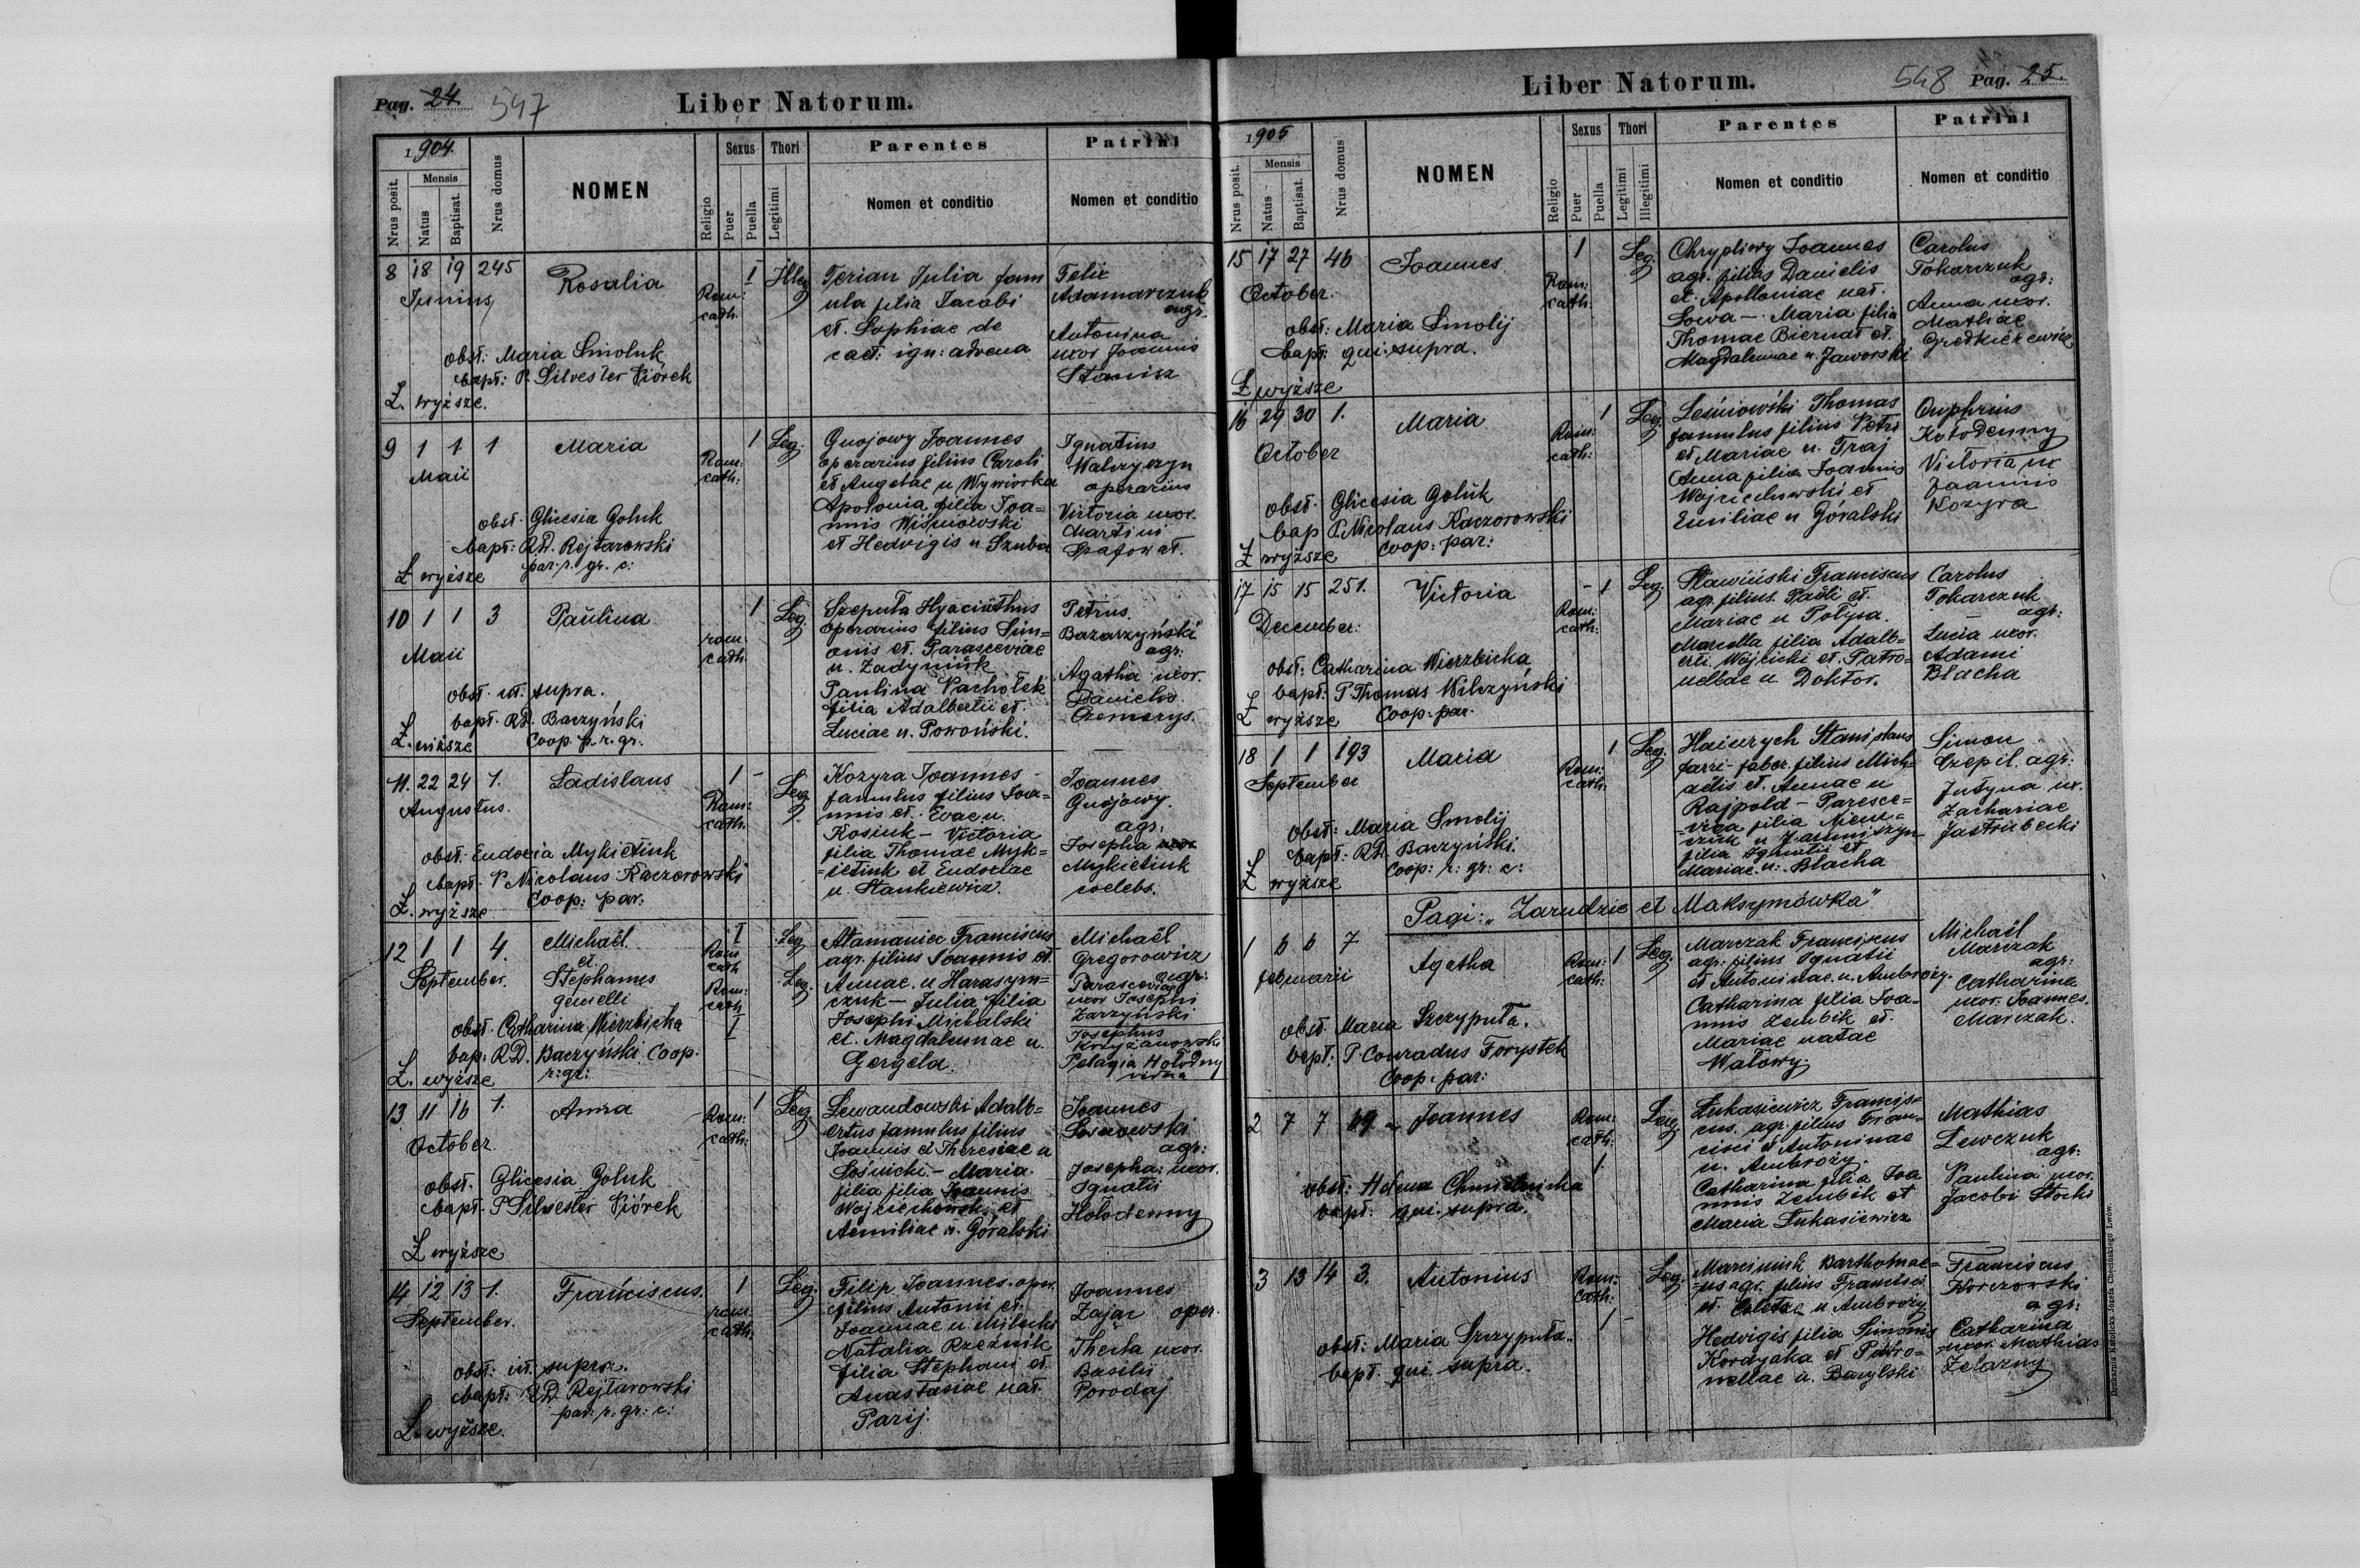 Pag. 24. 547
Liber Natorum.
1904.
Nrus posit.
Mensis
Natus
Baptisat.
Nrus domus
NOMEN
Religio
Sexus
Puer
Puella
Thori
Legitimi
Parentes
Nomen et conditio
Patrini
Nomen et conditio
8 18 19 245
Junius
Rosalia
Rom:
cath.
I
Illeg
Terian Julia fam
ula filia Jacobi
et Sophiae de
caet: ign: advena
Felix
Adamarczuk
agr.
Antonina
uxor Joannis
Stanisz
obst: Maria Smoluk
bapt: P. Silvester Piórek
Ł. wyższe.
9 1 1 1
Maii
Maria
Rom:
cath:
1
Leg.
Gnojowy Joannes
operarius filius Caroli
et Angelae n Wywiorka
Apolonia filia Joa=
nnis Wiśniowski
et Hedvigis n Szuba
Ignatius
Walczyszyn
operarius
Victoria uxor.
Martini
Szafował.
obst. Glicesia Goluk
bapt: RD. Rejtarowski
par. r. gr. c:
Ł wyższe
10 1 1 3
Maii
Paulina
rom:
cath
1
Leg.
Szeputa Hyacinthus
operarius filius Sim=
onis et. Parasceviae
n. Zadyniuk
Paulina Pachołek
filia Adalberti et
Luciae n. Powoński.
Petrus
Bazarzyński
agr:
Agatha uxor.
Danielis
Czemerys.
obst. ut. supra.
bapt. RD. Baczyński
Coop. p. r. gr.
Ł. niższe
11. 22 24 1.
Augustus.
Ladislaus
1 -
Rom:
cath.
Leg.
Kozyra Joannes -
famulus filius Joa=
nnis et. Evae n.
Kosiuk - Victoria
filia Thomae Myk=
=ietiuk et Eudociae
n. Stankiewicz
Joannes
Gnojowy.
agr:
Josepha
Mykietiuk
coelebs.
obst. Eudocia Mykietiuk
bapt. P Nicolaus Kaczorowski
Coop: par:
Ł. wyższe
12 1 1 4.
September.
Michaël
et
Stephanus
gemelli
I
Rom
cath
Rom:
cath
I
Leg
Leg.
Atamaniec Franciscus
agr. filius Joannis et
Annae. n Harasym=
czuk - Julia filia
Josephi Michalski
et. Magdalenae n.
Gergela.
Michaël
Gregorowicz
agr:
Parascevia
uxor Josephi
Zarzyński
Josephus
Krzyżanowski
Pelagia Hołodny
vidua
obst. Catharina Wierzbicka
bap: RD. Baczyński Coop:
r: gr:
Ł. wyższe
13 11 16 1.
October.
Anna
Rom:
cath:
1
Leg.
Lewandowski Adalb=
ertus famulus filius
Joannis et Theresiae n
Sośnicki - Maria
filia filia Joannis
Wojciechowski et
Aemiliae n. Góralski
Joannes
Sosnowski
agr:
Josepha: uxor.
Ignatii
Hołodenny
obst. Glicesia Goluk
bapt. P Silvester Piórek
Ł wyższe
14 12 13 1.
September.
Franciscus.
1
rom.
cath.
Leg.
Filip Joannes. oper.
filius Antonii et
Joannae n Milecki
Natalia Rzeźnik
filia Stephani et
Anastasiae nat.
Parij.
Joannes
Zając oper.
Thecla uxor.
Basilii
Porodaj
obst. ut. supra.
bapt: RD. Rejtarowski
par: r. gr: c:
Ł wyższe.
Liber Natorum.
548 Pag. 25.
1905
Nrus posit.
Mensis
Natus
Baptisat.
Nrus domus
NOMEN
Religio
Sexus
Puer
Puella
Thori
Legitimi
Illegitimi
Parentes
Nomen et conditio
Patrini
Nomen et conditio
15 17 27 46
October.
Joannes
1
Rom:
cath:
Leg.
Chrypliwy Joannes
agr. filius Danielis
et. Apolloniae nat.
Sowa - Maria filia
Thomae Biernat et.
Magdalenae n. Jaworski
Carolus
Tokarczuk
agr:
Anna uxor.
Mathiae
Gredkiewicz
obst: Maria Smolij
bapt: qui supra.
Ł wyższe
16 29 30 1.
October
Maria
1
Rom:
cath:
Leg.
Leśniowski Thomas
famulus filius Petri
et Mariae n. Traj
Anna filia Joannis
Wojciechowski et
Emiliae n Góralski
Onuphrius
Kołodenny
Victoria ux
Joannis
Kozyra
obst. Glicesia Goluk
bap P. Nicolaus Kaczorowski
Coop: par:
Ł wyższe
17 15 15 251.
December:
Victoria
- 1
Rom:
cath:
Leg.
Sławiński Franciscus
agr. filius. Pauli et.
Mariae n Potyra.
Marcella filia Adalb=
erti. Wojcicki et. Patro=
nellae n Doktor.
Carolus
Tokarczuk
agr:
Lucia uxor.
Adami
Błacha
obst. Catharina Wierzbicka
bapt: P Thomas Wilczyński
Coop. par.
Ł wyższe
18 1 1 193
September
Maria
1
Rom:
cath:
Leg.
Haiwrych Stanislaus
farri-faber. filius Mich=
aëlis et. Annae n
Rajpold - Paresce=
-viga filia Niem=
czuk n Jarmiszyn
filia Ignatii et
Mariae. n: Błacha
Simon
Czepil. agr:
Justyna ux.
Zachariae
Jastrubecki
obst: Maria Smolij
bapt: RD. Baczyński
Coop: r: gr: c:
Ł wyższe
Pagi: „Zarudzie et Maksymówka"
1 6 6 7
februarii
Agatha
Rom:
cath:
1
Leg.
Marczak Franciscus
agr: filius Ignatii
et Antoninae. n. Ambroży.
Catharina filia Joa=
nnis Zembik et.
Mariae natae
Watowy.
Michaël
Marczak
agr:
Catharina
uxor. Joannes.
Marczak.
obst. Maria Szczyputa.
bapt. P. Conradus Forystek
Coop. par:
2 7 7 69
Joannes
Rom:
cath:
1.
Leg.
Łukasiewicz Francis=
cus. agr. filius Fran=
cisci et Antoninae
n. Ambroży.
Catharina filia Joa
nnis Zembik et
Maria Łukasiewicz
Mathias
Lewczuk
agr:
Paulina uxor.
Jacobi Stocki
obst: Helena Chmielnicka
bapt. qui. supra.
3 13 14 3.
Antonius
Rom:
Cath:
1 -
Leg.
Marciniuk Bartholomae=
=us agr. filius Francisci
et. n Ambroży
Hedvigis filia Simonis
Kordyaka et Patro=
nellae n. Barylski
Franciscus
Korczowski
agr:
Catharina
uxor. Mathias
Żelazny
obst: Maria Szczyputa.
bapt. qui supra.
Drukarnia Katolicka Józefa Chęcińskiego Lwów.